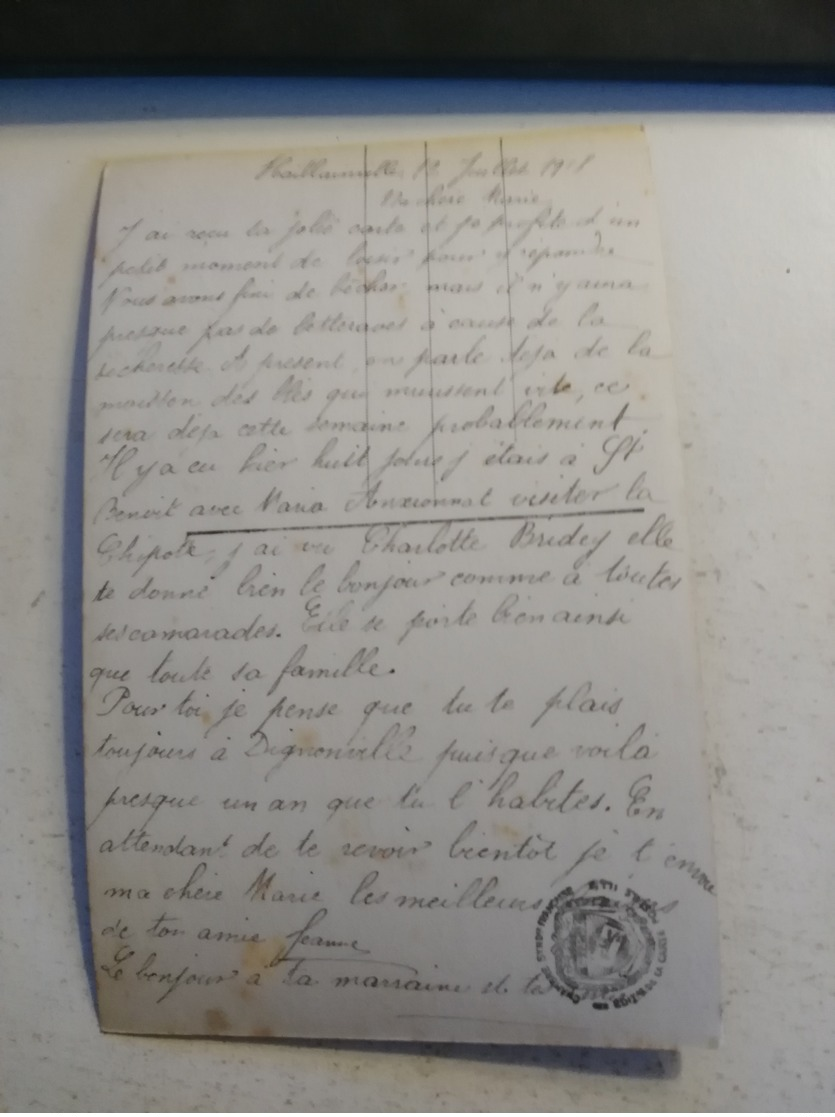 Haillainville, 12 Juillet 1918
Ma chère Marie,
J'ai reçu ta jolie carte et je profite d'un
petit moment de loisir pour y répondre
Nous avons fini de bêcher mais il n'y aura
presque pas de betteraves à cause de la
sécheresse A présent, on parle déjà de la
moisson des blés qui murissent vite, ce
sera déja cette semaine probablement.
Il y a eu hier huit jours j'étais à St
Benoit avec Maria Anxionnat visiter la
Chipote, j'ai vu Charlotte Bridey elle
te donne bien le bonjour comme à toutes
ses camarades. Elle se porte bien ainsi
que toute sa famille.
Pour toi je pense que tu te plais
toujours à Dignonville puisque voilà
presque un an que tu l'habites. En
attendant de te revoir bientôt je t'envoie
ma chère Marie les meilleurs
de ton amie Jeanne
Le bonjour à ta marraine et ta